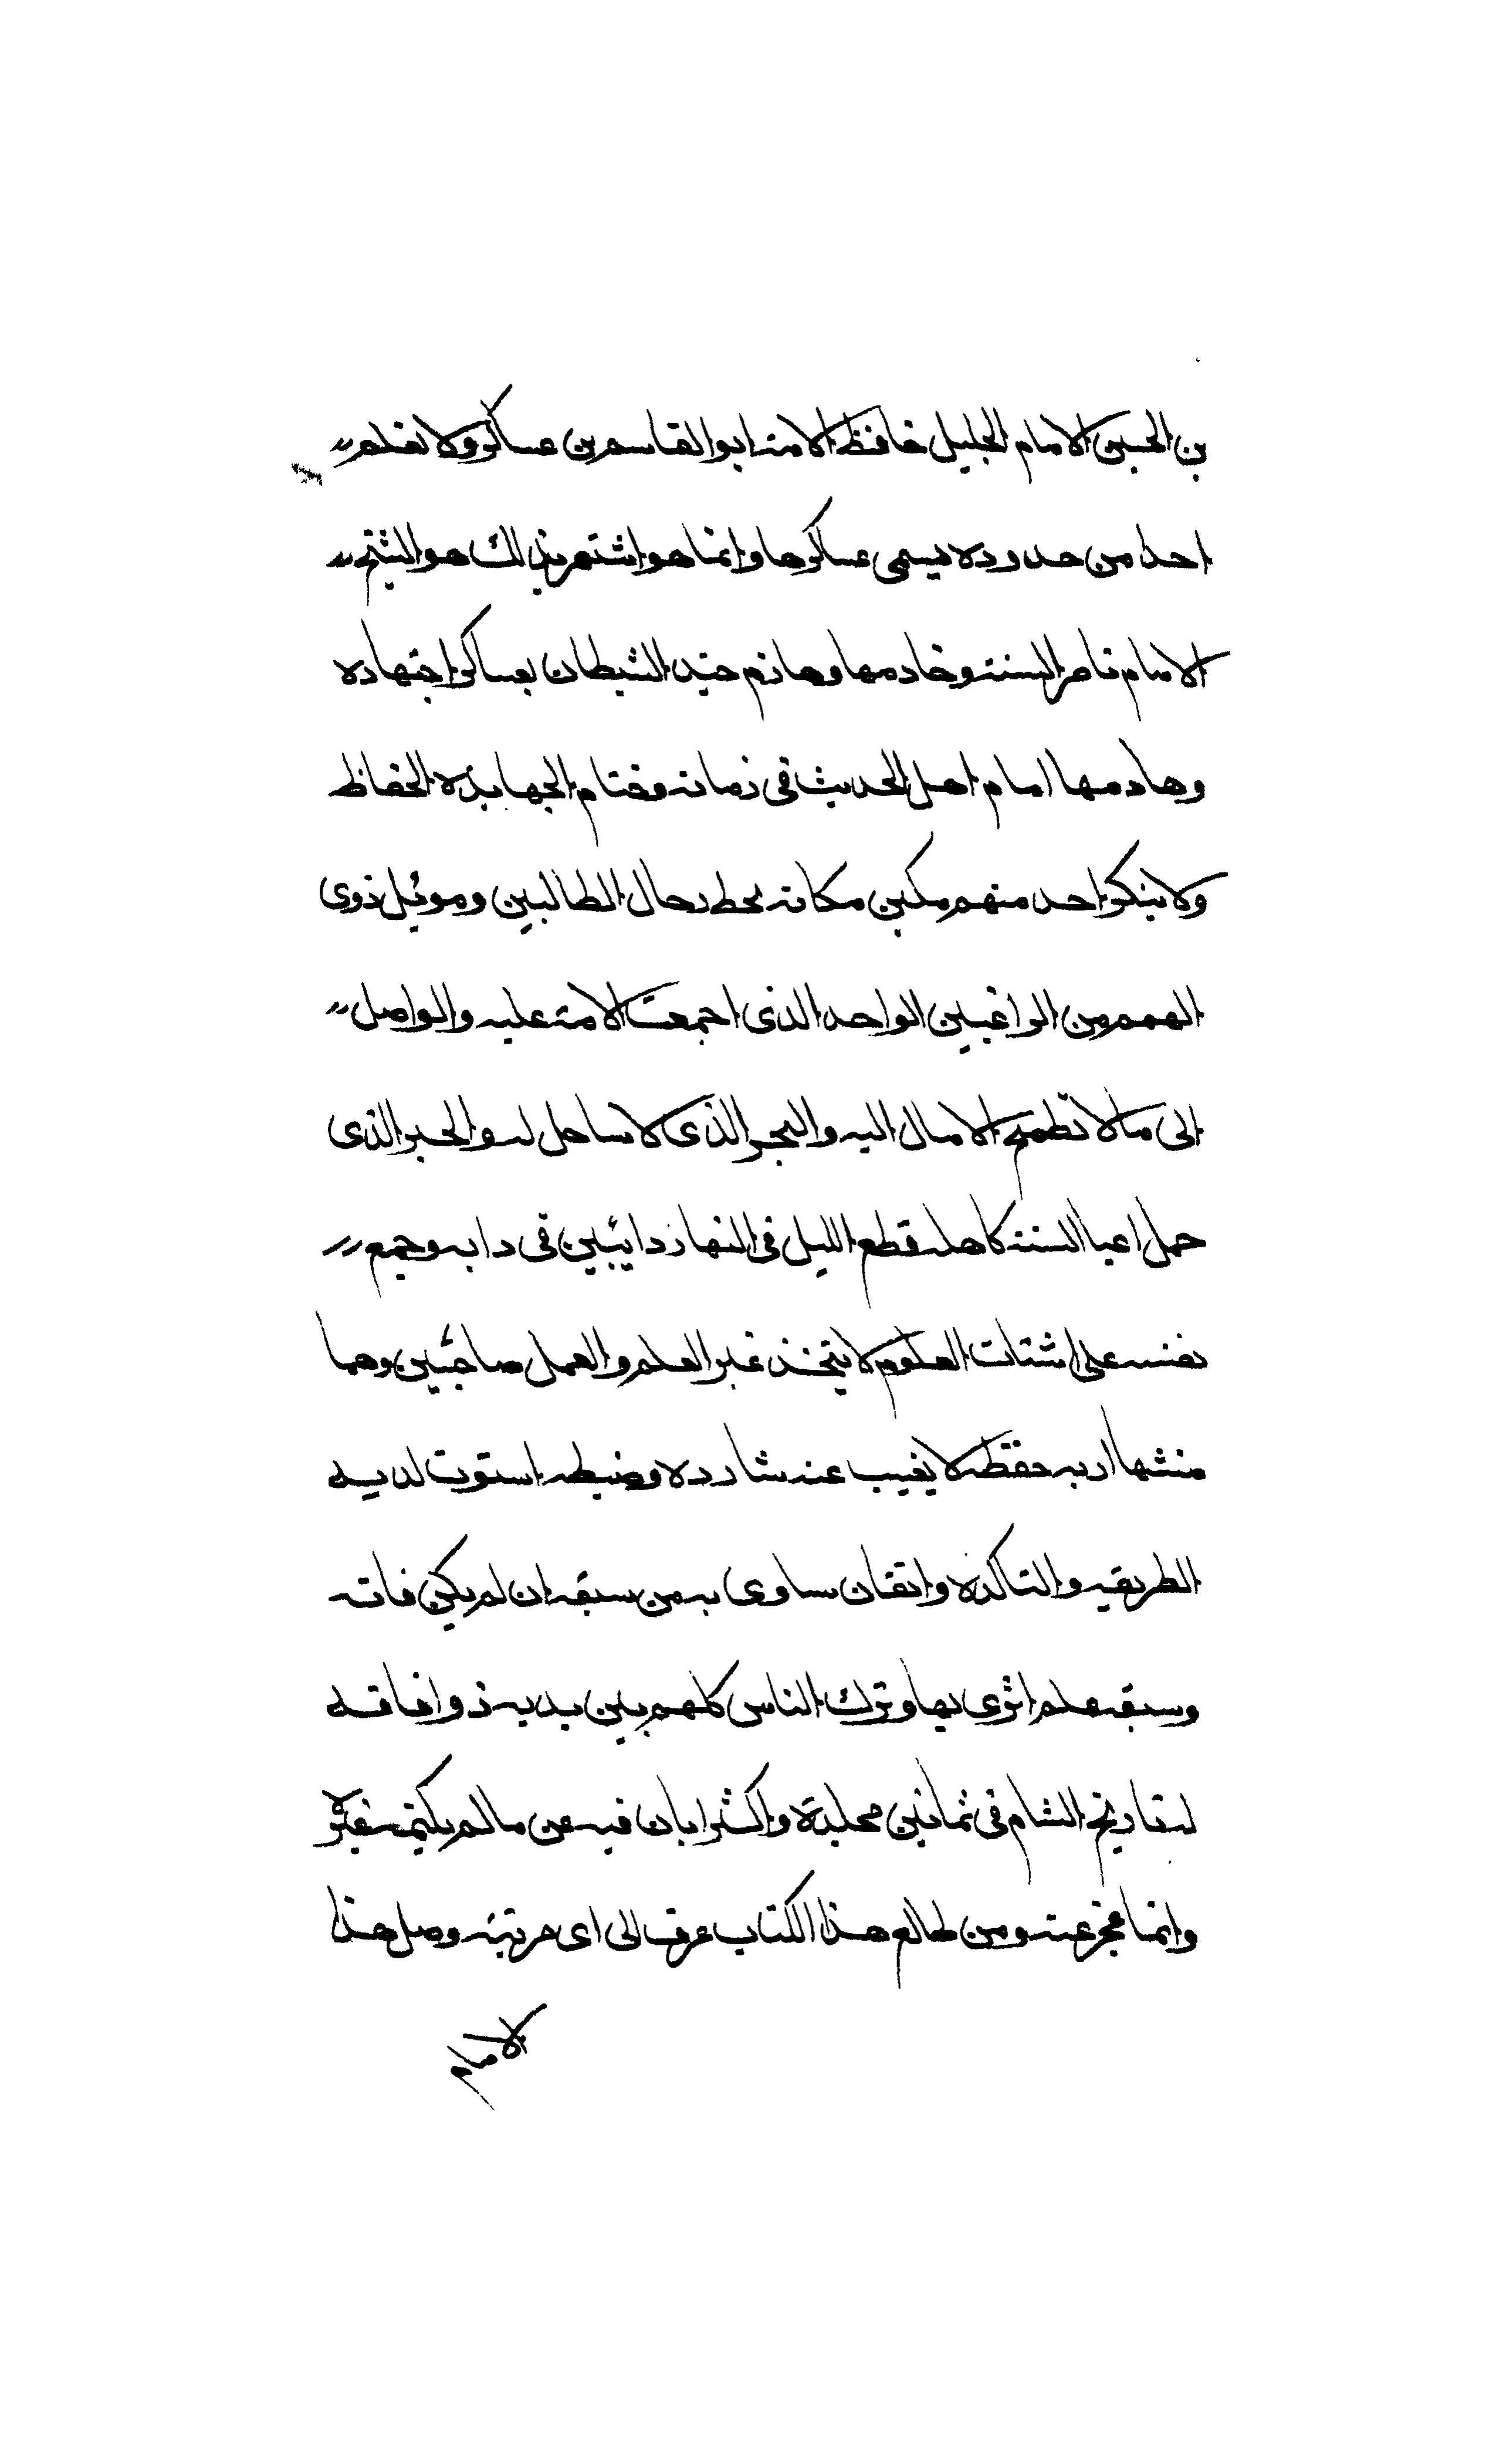 بن الحسين الامام الجليل حافظ الامة ابو القاسم بن عساكر ولا نعلم
احدا من جدوده يسمى عساكرها وانما هو اشتهر بذالك هو الشيخ
الامام ناصر السنة وخادمها وهازم جند الشيطان بعساكر اجتهاده
وهادمها امام اهل الحديث فى زمانه وختام الجهابذة الحفاظ
ولا ينكر احد منهم مكين مكانه محط رحال الطالبين وموئل ذوى
الهمم من الراغبين الواحد الذى اجمعت الامة عليه والواصل
الى ما لا تطمح الامال اليه والبحر الذى لا ساحل له والحبر الذى
حمل اعبا السنة كاهله قطع الليل فى النهار دائبين فى دابه وجمع
نفسه على اشتات العلوم لا يتخذ غير العلم والعمل صاحبين وهما
منتهى اربه حفظه لا يغيب عنه شارده وضبطه استوت لديه
الطريقه والتالده واتقان ساوى به من سبقه ان لم يكن فاته
وسبقه علم اثرى بها وترك الناس كلهم بين يديه ذوا فاقه
له تاريخ الشام فى ثمانين مجلدة واكثر ابان فيه عن ما لم يكتمه غيره
وانما عجز عنه ومن طالع هذا الكتاب عرف الى اى مرتبة وصل هذا
الامام